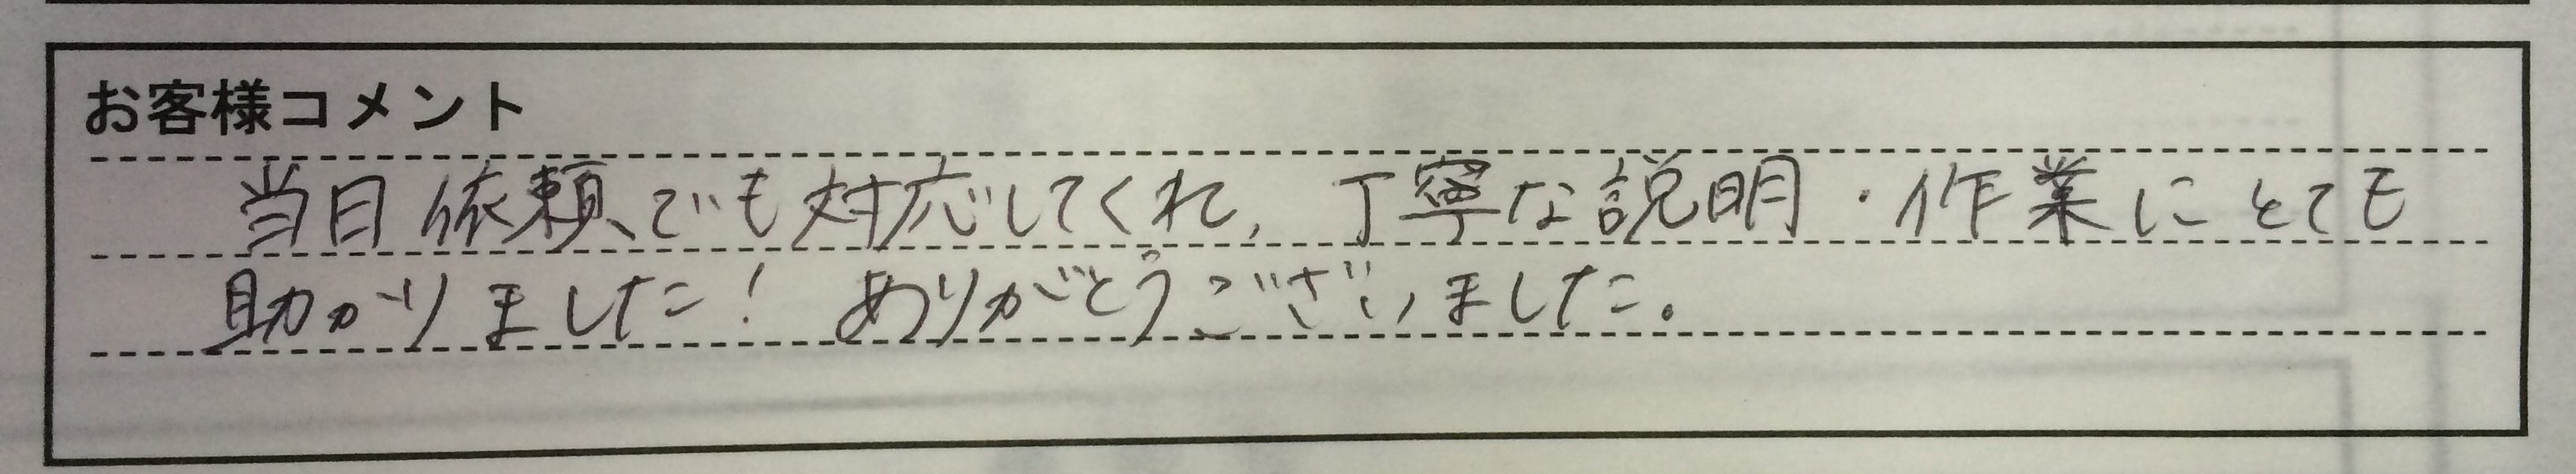 お客様コメント
当日依頼でも対応してくれ、丁寧な説明・作業にとても
助かりました！ ありがとうございました。